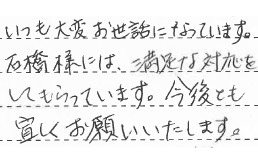 いつも大変お世話になっています。
石橋様には、満足な対応を
してもらっています。今後とも
宜しくお願いいたします。